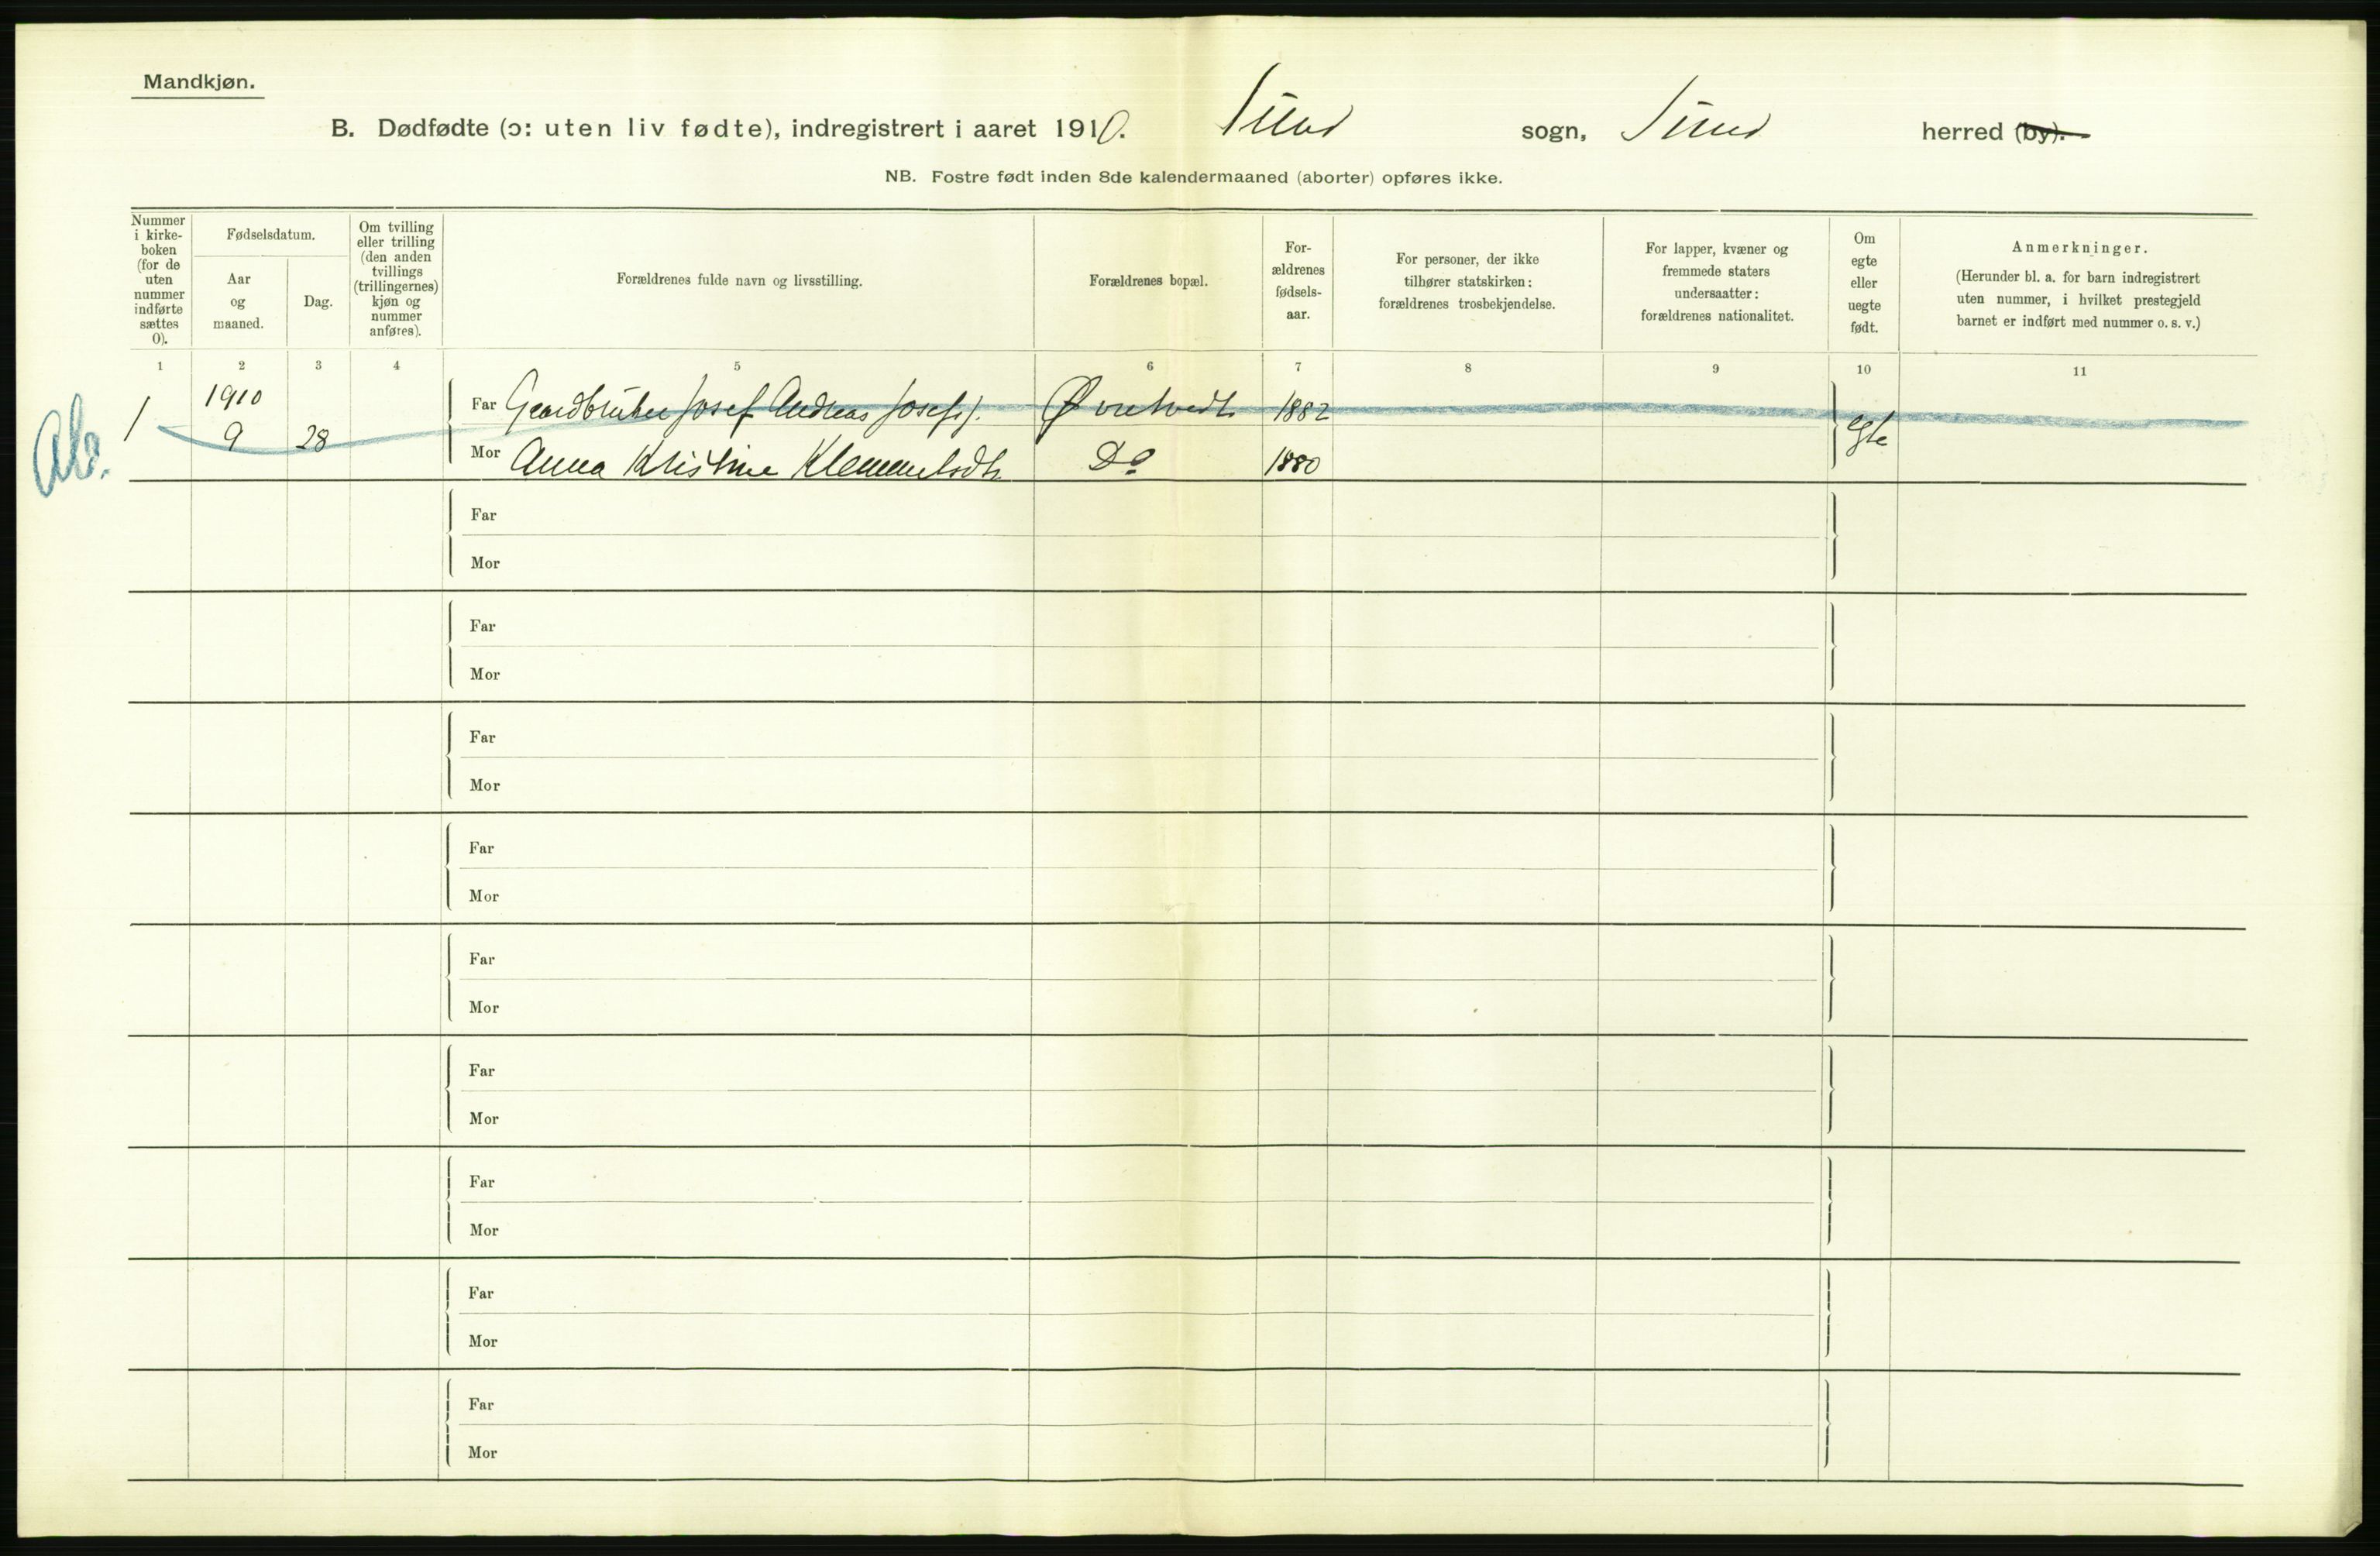 Mandkjøn.
B. Dødfødte (ɔ: uten liv fødte), indregistrert i aaret 1910. Sund sogn, Sund herred (by).
NB. Fostre født inden 8de kalendermaaned (aborter) opføres ikke.
Nummer
i kirke-
boken
(for de
uten
nummer
indførte
sættes
0).
Fødselsdatum.
Aar
og
maaned.
Dag.
Om tvilling
eller trilling
(den anden
tvillings
(trillingernes)
kjøn og
nummer
anføres).
Forældrenes fulde navn og livsstilling.
Forældrenes bopæl.
For-
ældrenes
fødsels-
aar.
For personer, der ikke
tilhører statskirken:
forældrenes trosbekjendelse.
For lapper, kvæner og
fremmede staters
undersaatter:
forældrenes nationalitet.
Om
egte
eller
uegte
født.
Anmerkninger.
(Herunder bl. a. for barn indregistrert
uten nummer, i hvilket prestegjeld
barnet er indført med nummer o. s. v.)
1 2 3 4 5 6 7 8 9 10 11
1910
1 9 28 Far Gaardbruker Josef Andreas Josefs). Øvretvedt 1882 egte
Mor Anna Kristine Klemmetsdtr Do 1880
Far
Mor
Far
Mor
Far
Mor
Far
Mor
Far
Mor
Far
Mor
Far
Mor
Far
Mor
Far
Mor